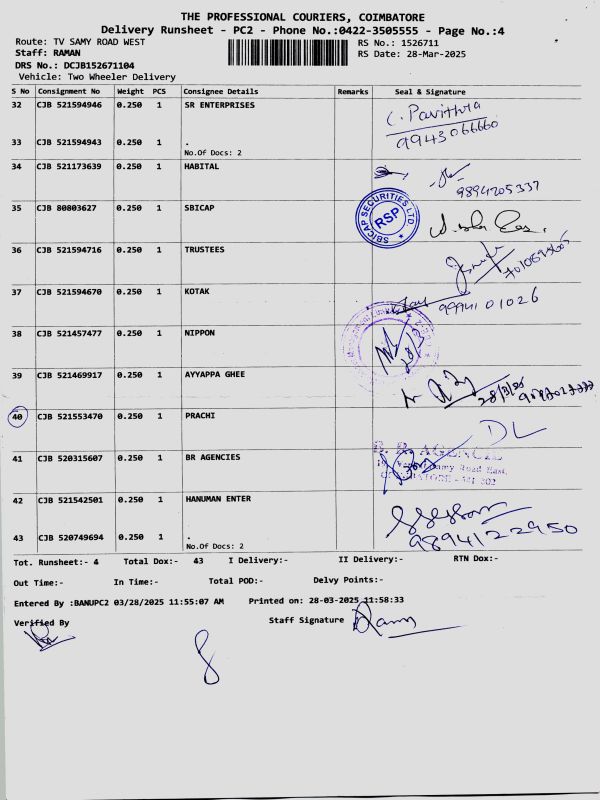 THE PROFESSIONAL COURIERS, COIMBATORE
Delivery Runsheet - PC2 - Phone No.:0422-3505555 - Page No.:4
Route: TV SAMY ROAD WEST RS No.: 1526711
Staff: RAMAN RS Date: 28-Mar-2025
DRS No.: DCJB152671104
Vehicle: Two Wheeler Delivery
S No Consignment No Weight PCS Consignee Details Remarks Seal & Signature
32 CJB 521594946 0.250 1 SR ENTERPRISES C. Pavithra
33 CJB 521594943 0.250 1 . 9943066660
No.Of Docs: 2
34 CJB 521173639 0.250 1 HABITAL
9894205337
35 CJB 80803627 0.250 1 SBICAP SBICAP SECURITIES LTD. RSP
36 CJB 521594716 0.250 1 TRUSTEES
37 CJB 521594670 0.250 1 KOTAK 99941 01026
38 CJB 521457477 0.250 1 NIPPON
39 CJB 521469917 0.250 1 AYYAPPA GHEE
28/3/25
40 CJB 521553470 0.250 1 PRACHI DL
41 CJB 520315607 0.250 1 BR AGENCIES
42 CJB 521542501 0.250 1 HANUMAN ENTER
43 CJB 520749694 0.250 1 . 9894122950
No.Of Docs: 2
Tot. Runsheet:- 4 Total Dox:- 43 I Delivery:- II Delivery:- RTN Dox:-
Out Time:- In Time:- Total POD:- Delvy Points:-
Entered By :BANUPC2 03/28/2025 11:55:07 AM Printed on: 28-03-2025 11:58:33
Verified By Staff Signature Raman